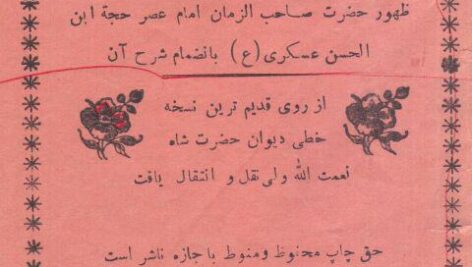 ظهور حضرت صاحب الزمان امام عصر حجة ابن
الحسن عسکری (ع) بانضمام شرح آن
از روی قدیم ترین نسخه
خطی دیوان حضرت شاه
نعمت الله ولی نقل و انتقال یافت
حق چاپ محفوظ ومنوط باجازه ناشر است